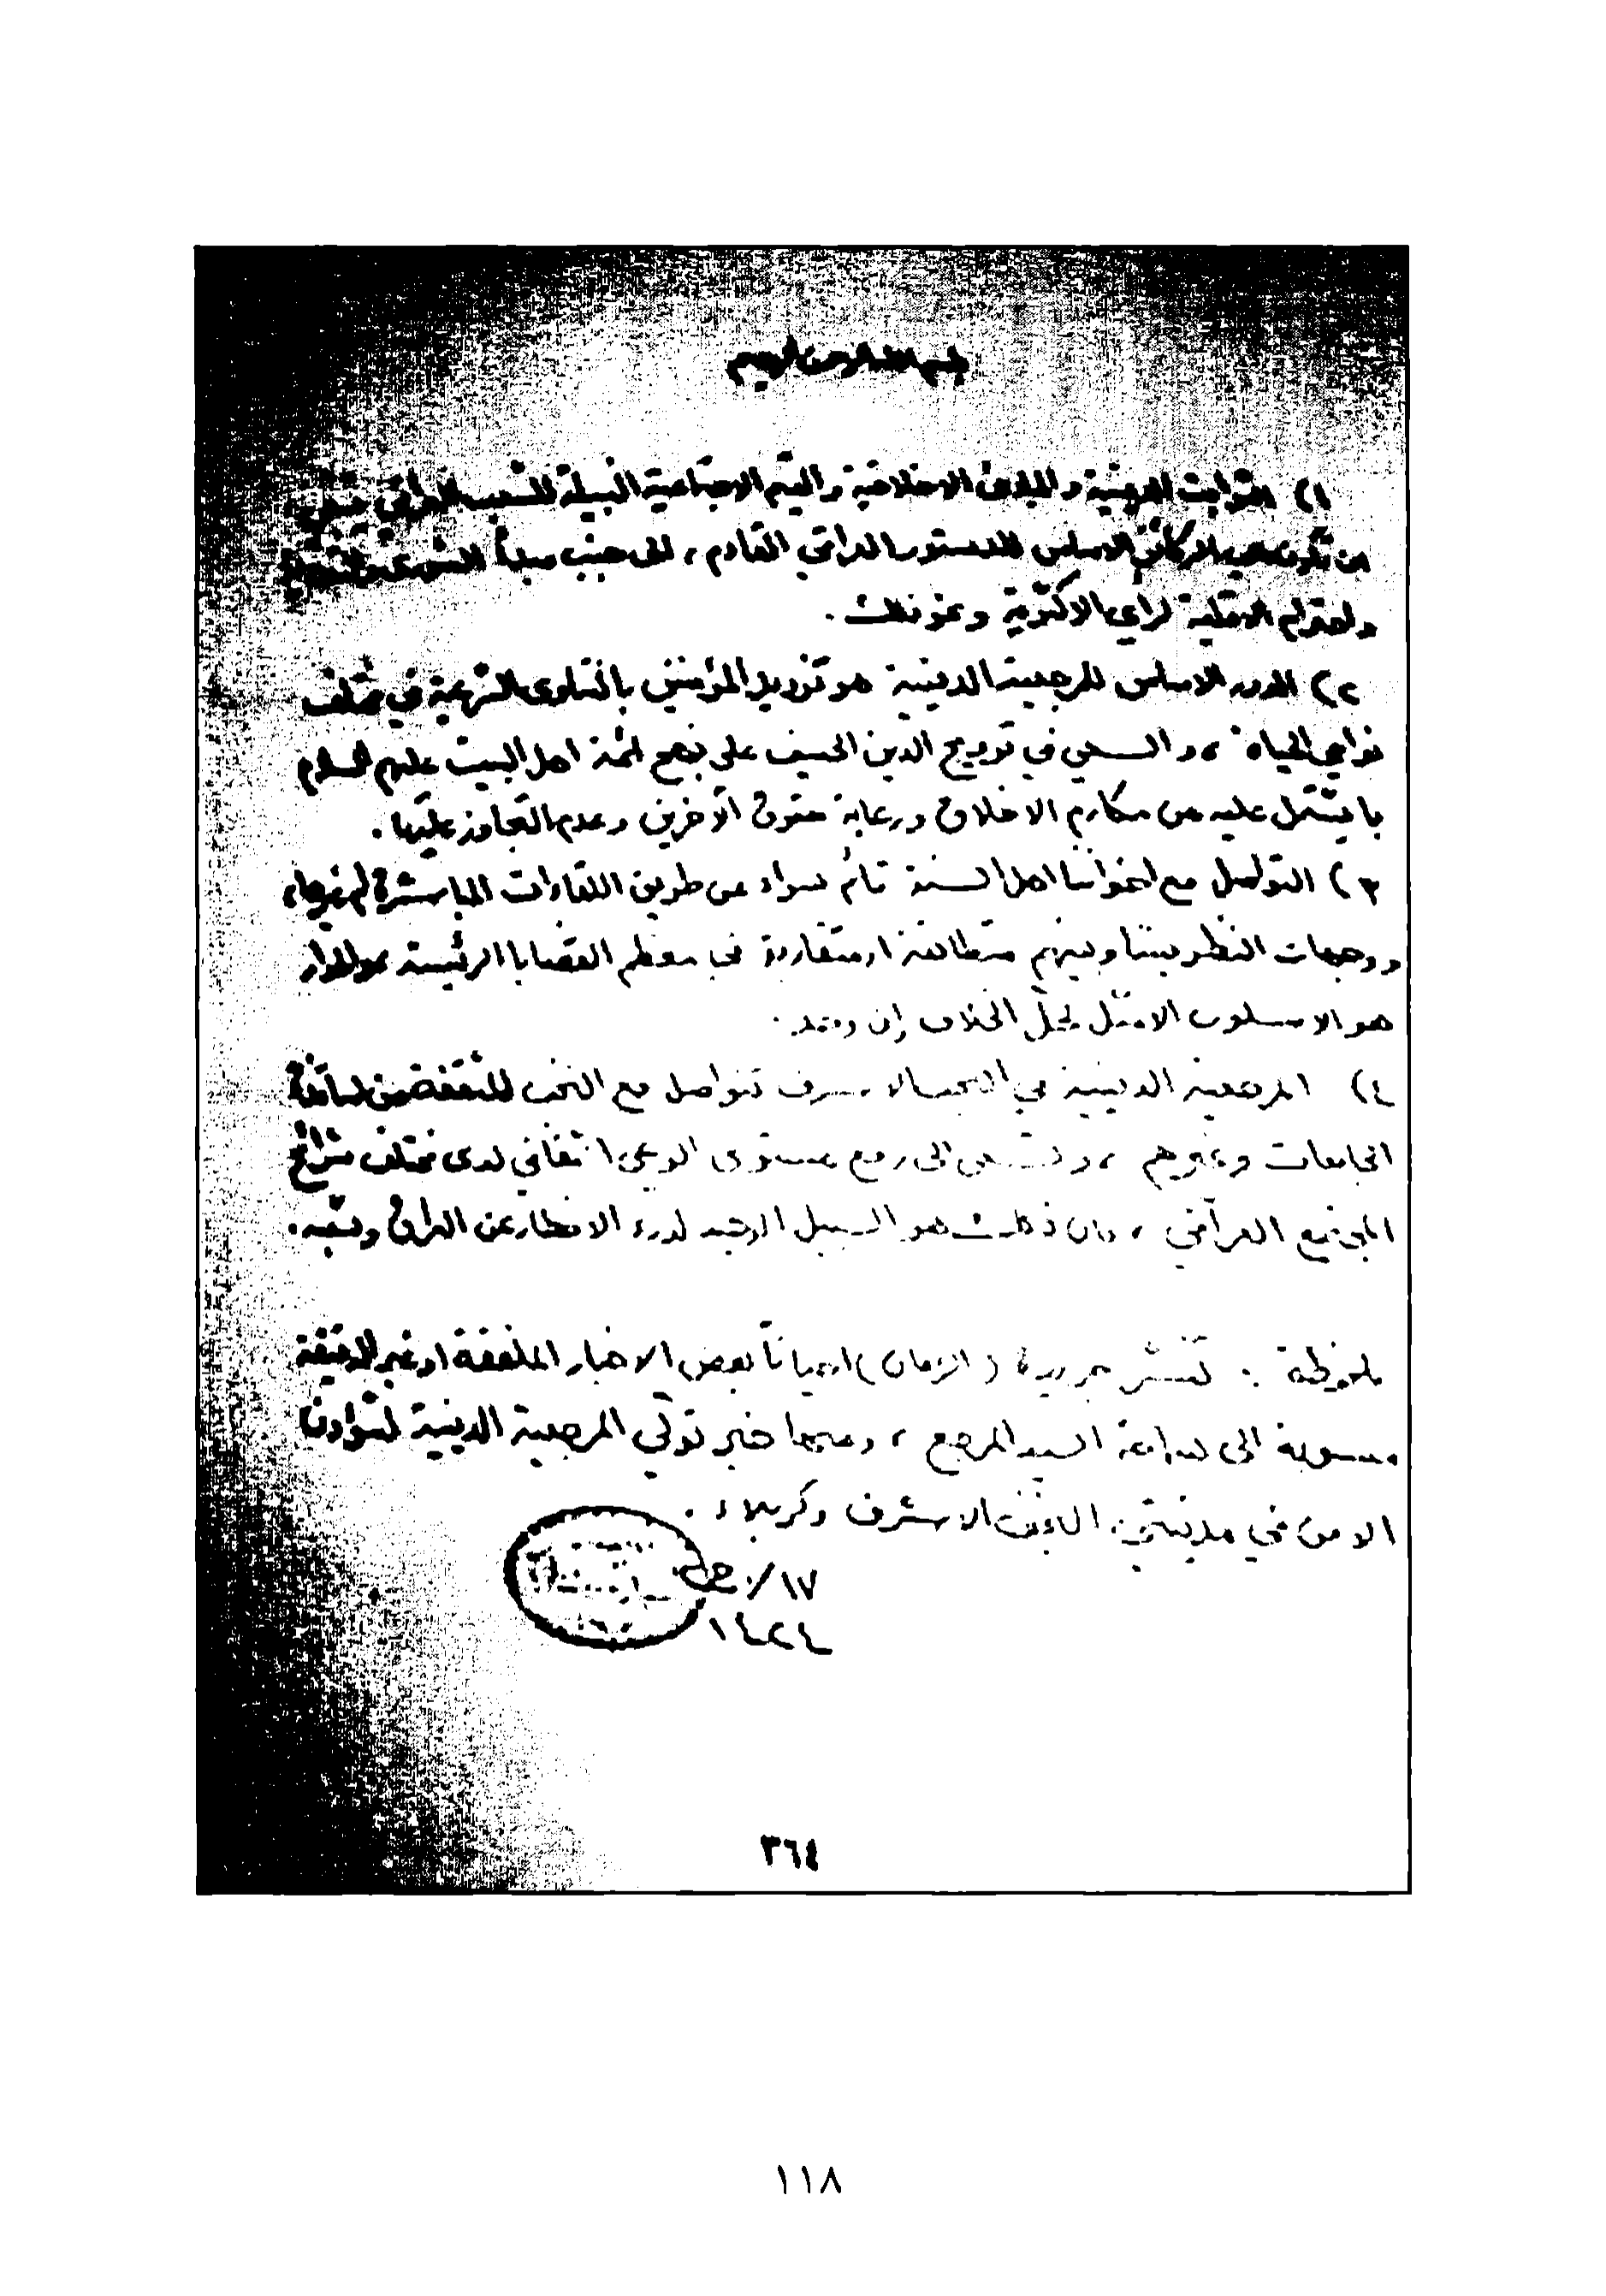 بسم الله الرحمن الرحيم
١) الثوابت الدينية والمبادئ الاخلاقية والقيم الاجتماعية النبيلة للشعب العراقي ينبغي
ان تكون هي الركائز الاساس للدستور العراقي القادم، الى جنب مبدأ الشورى
واحترام الاقلية لرأي الاكثرية ونحو ذلك.
٢) الدور الاساس للمرجعية الدينية هو تزويد المؤمنين بالفتاوى الشرعية في مختلف
نواحي الحياة، والسعي في ترويج الدين الحنيف على نهج ائمة اهل البيت عليهم السلام
بما يشتمل عليه من مكارم الاخلاق ورعاية حقوق الآخرين وعدم التجاوز عليها.
٣) التواصل مع اخواننا اهل السنة قائم سواء عن طريق اللقاءات المباشرة ام غيرها،
ووجهات النظر بيننا وبينهم متطابقة او متقاربة في معظم القضايا الرئيسة والحوار
هو الاسلوب الامثل لحلّ الخلاف إن وجد.
٤) المرجعية الدينية في النجف الاشرف تتواصل مع النخب المثقفة من اساتذة
الجامعات وغيرهم، وتسعى الى رفع مستوى الوعي الثقافي لدى مختلف شرائح
المجتمع العراقي، فان ذلك هو السبيل الوحيد لدرء الاخطار عن العراق وشعبه.
ملحوظة : تنشر جريدة (الزمان) احياناً بعض الاخبار الملفقة او غير الدقيقة
منسوبة الى سماحة السيد المرجع، ومنها خبر تولّي المرجعية الدينية لشؤون
الامن في مدينتي النجف الاشرف وكربلاء.
١٧/ج١
١٤٢٤
٣٦٤
١١٨